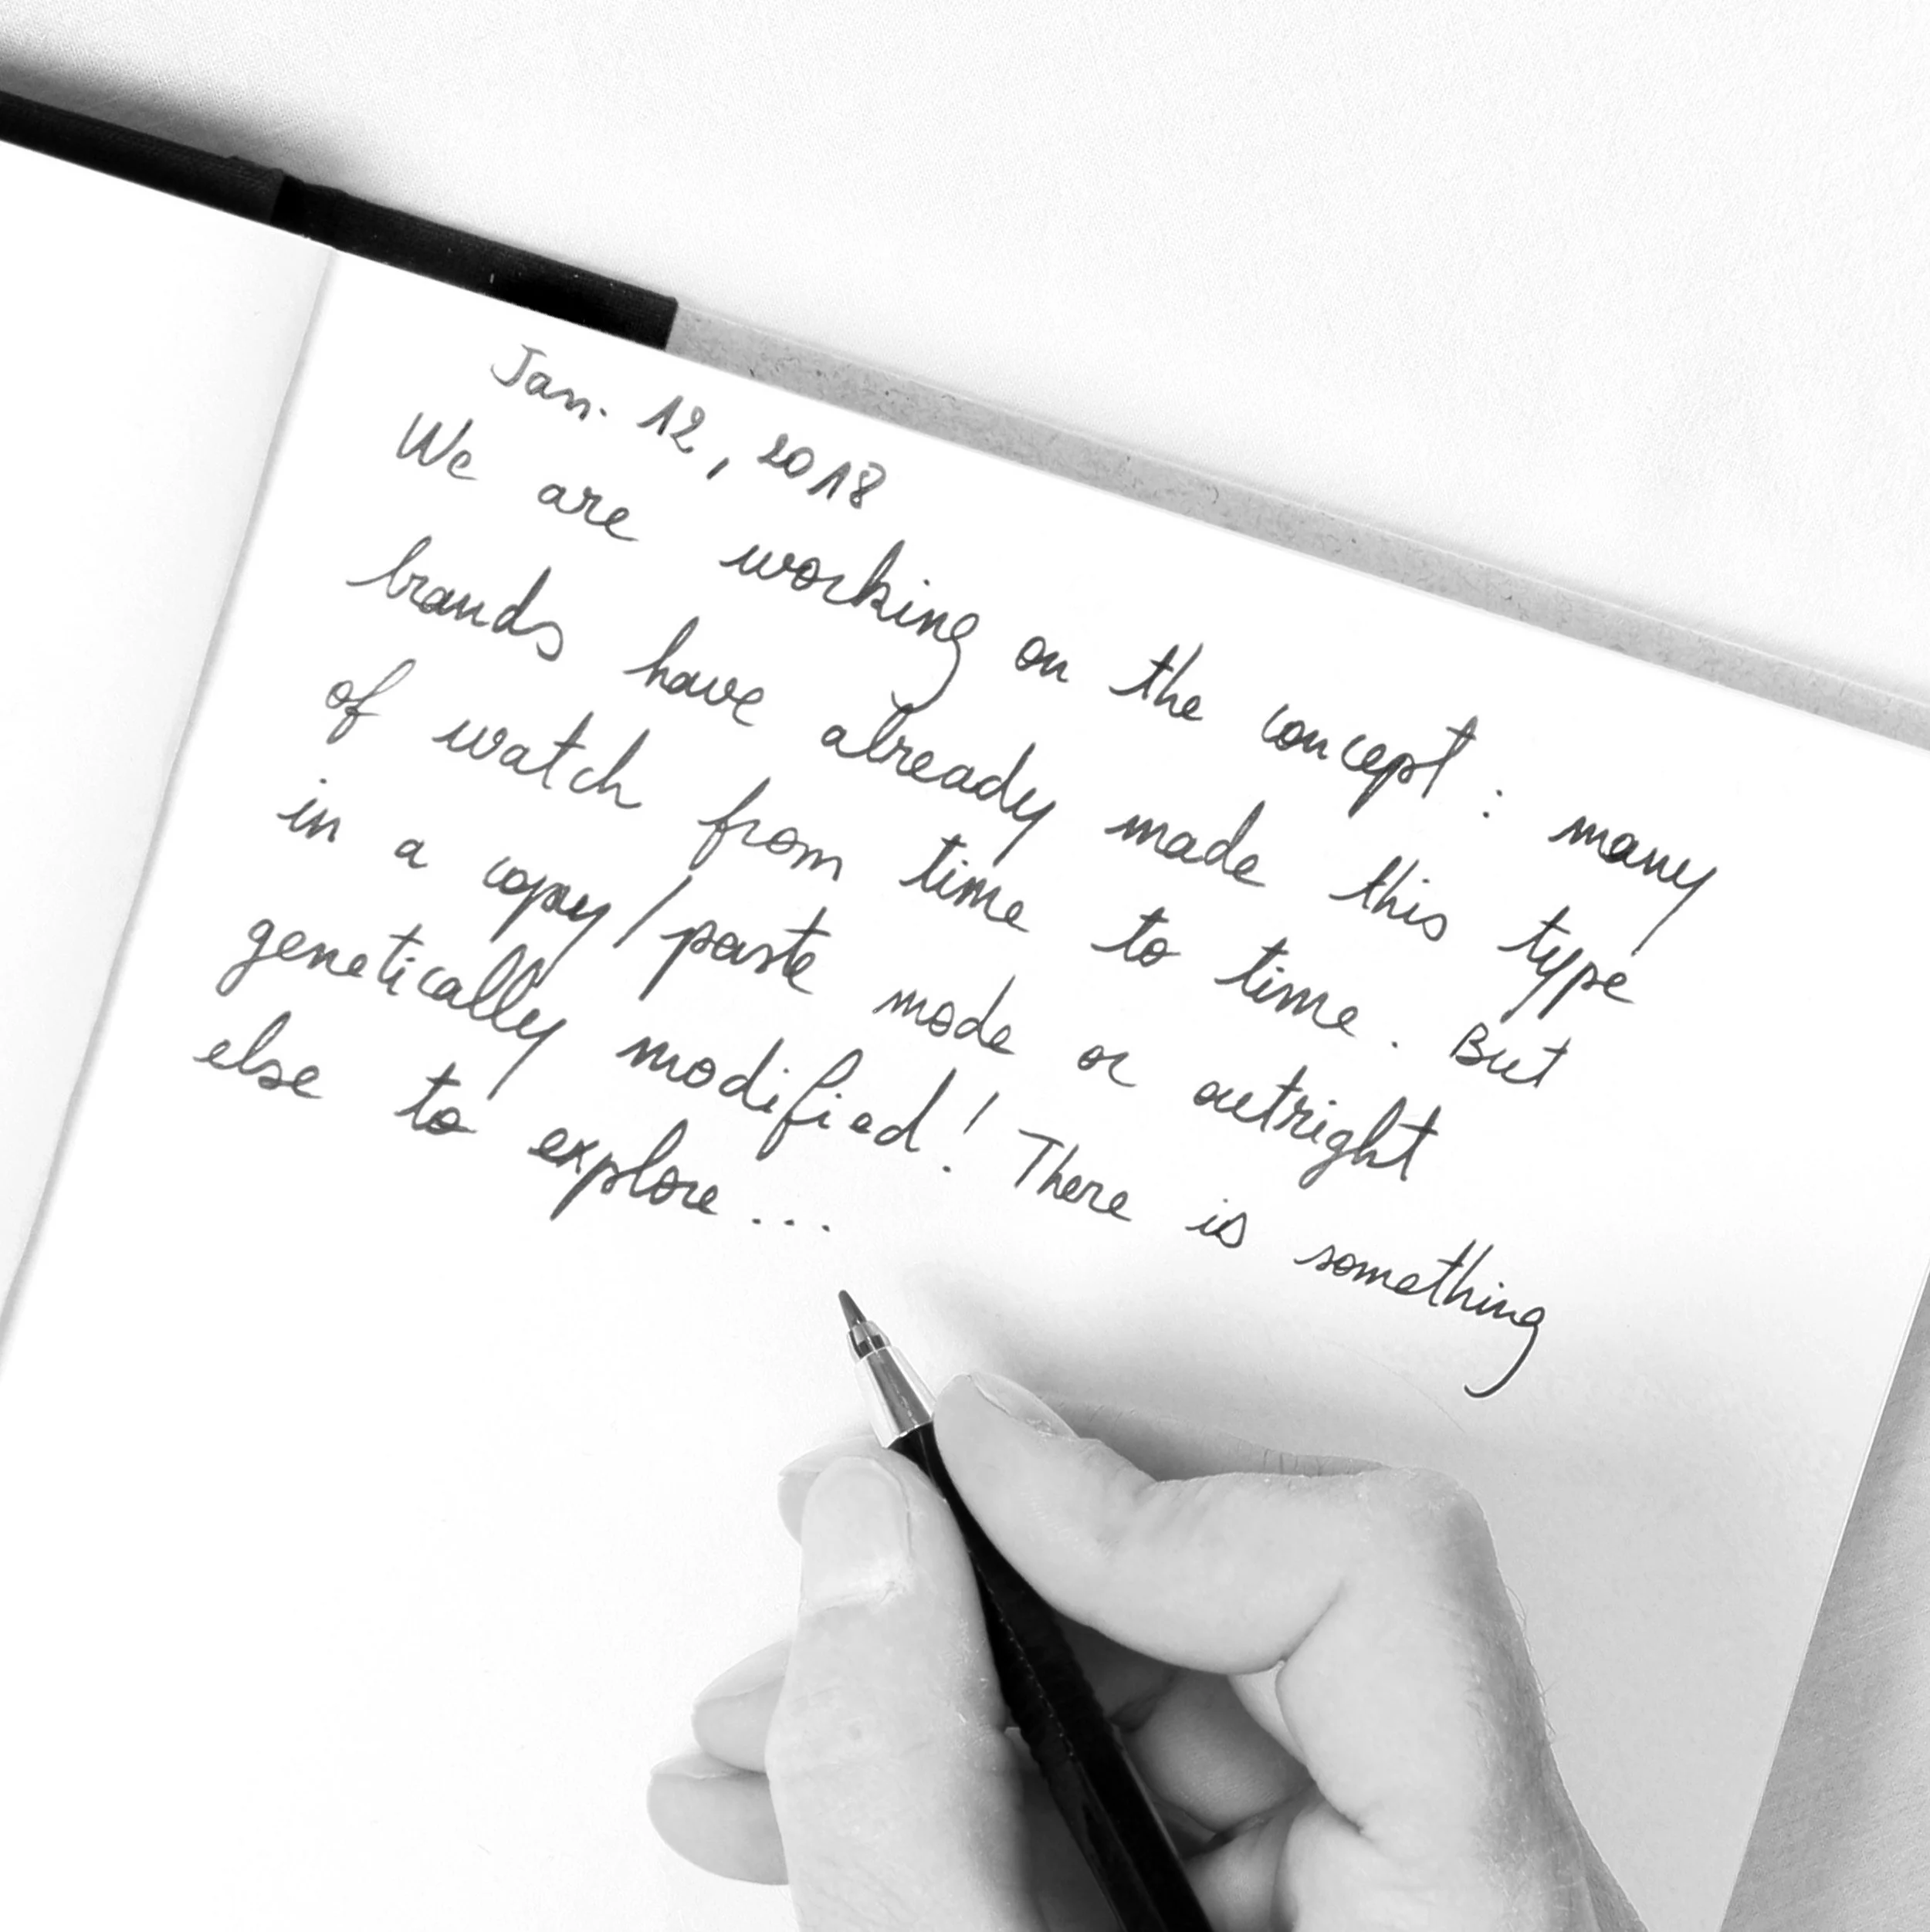 Jan. 12, 2018
We are working on the concept : many
brands have already made this type
of watch from time to time. But
in a copy/paste mode or outright
genetically modified! There is something
else to explore...